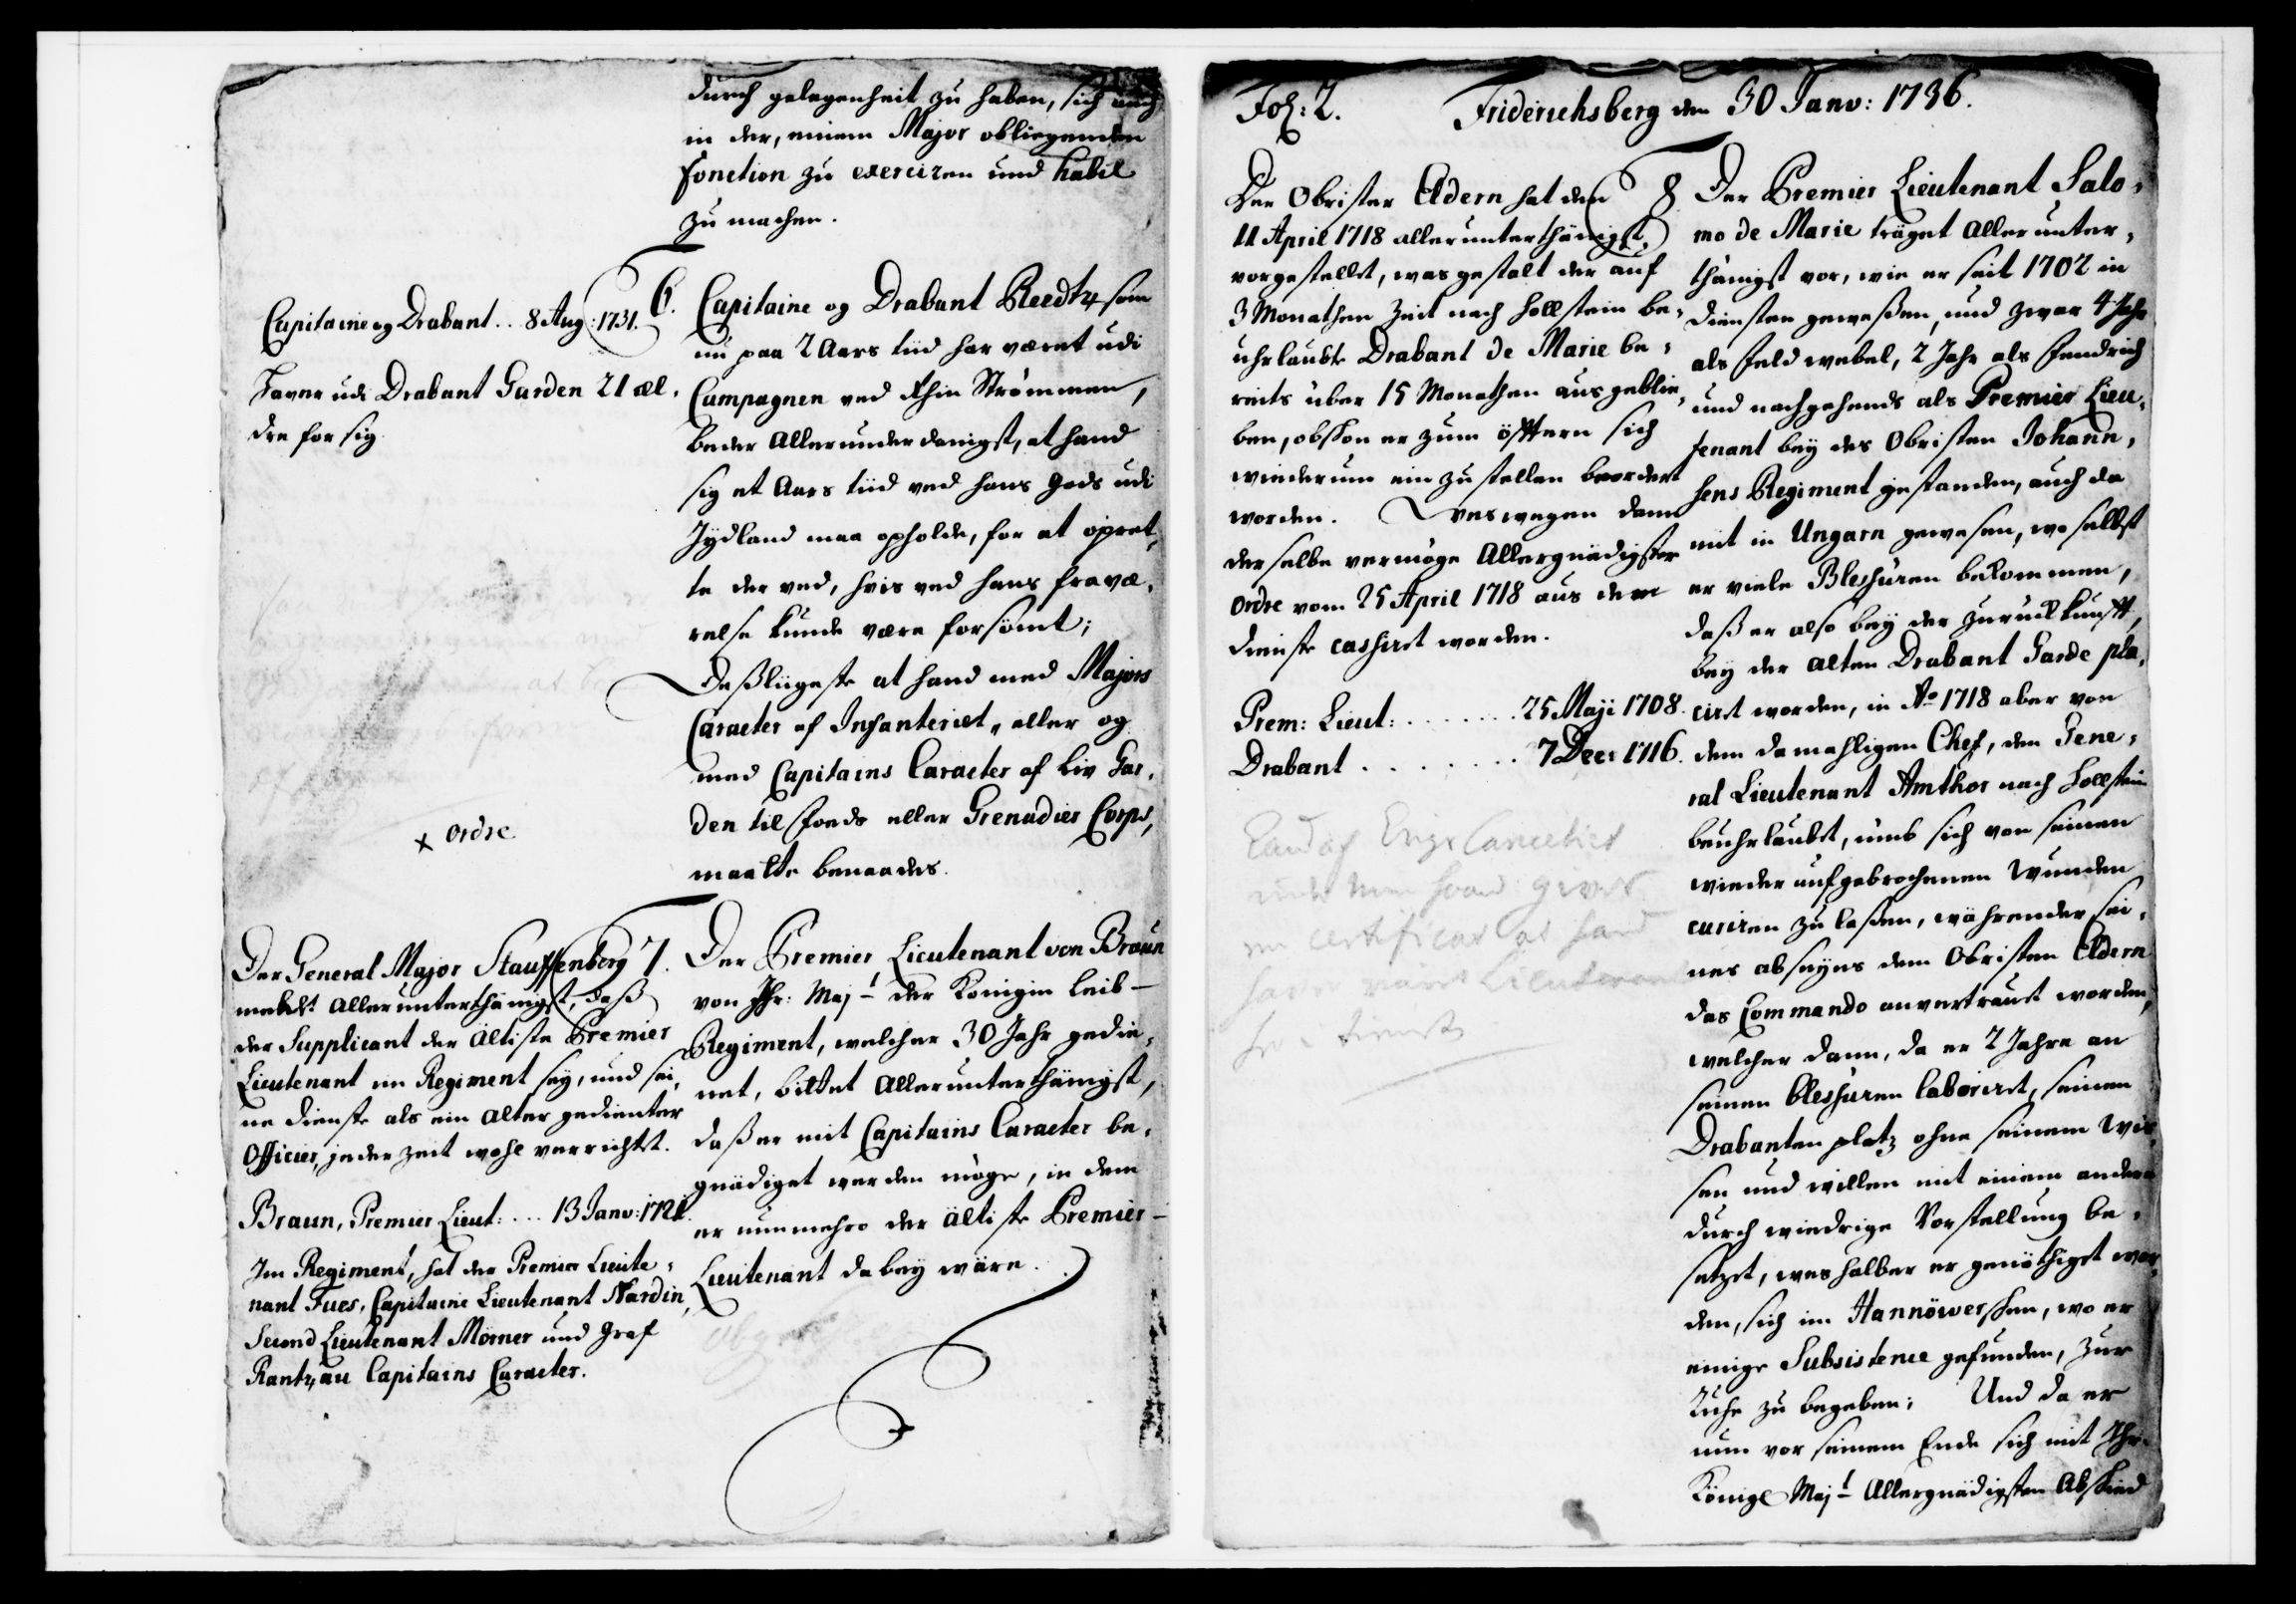 durch gelegenheit zu haben, sich auch
in der, einem Major obliegenden
fonction zu exerciren und habil
zu machen.
Capitaine og Drabant .. 8 Aug: 1731.
Farer udi Drabant Garden 21 æl,
dre for sig
6. Capitaine og Drabant Reedtz, som
nu paa 2 Aars tiid har været udi
Campagnen ved Rhin Strömmen,
beder Allerunderdanigst, at hand
sig et Aars tiid ved hans gods udi
Jydland maa opholde, for at opret,
te der ved, hvis ved hans fravæ,
relse kunde være forsömt;
Deßliigeste at hand med Majors
Caracter af Infanteriet, eller og
med Capitains Caracter af Liv Gar,
den til fods eller Grenadier Corps,
maatte benaades.
x ordre
Der General Major Stauffenberg
meldet allerunterthänigst, daß
der Supplicant der Ältiste Premier
Lieutenant im Regiment sey, und sei,
ne dienste als ein alter gedienter
Officier, jeder zeit wohl verrichtet.
Braun, Premier Lieut: ... 13 Janv: 1721.
Im Regiment, hat der Premier Lieute,
nant Fues, Capitaine Lieutenant Nardin,
Second Lieutenant Mörner und Graf
Rantzau Capitains Caracter.
7. Der Premier Lieutenant von Braun
von Ihr: Majt der Königin Leib-
Regiment, welcher 30 Jahr gedie,
net, bittet Allerunterthänigst,
daß er mit Capitains Caracter be,
gnädiget werden möge, in dem
er nunmehro der ältiste Premier-
Lieutenant dabey wäre.
Fol: 2.
Friderichsberg den 30 Janv: 1736.
Der Obrister Eldern hat den
11 April 1718 allerunterthänigst,
vorgestellet, was gestalt der auf
3 Monathen Zeit nach Hollstein be,
uhrlaubte Drabant de Marie be,
reits über 15 Monathen ausgeblie,
ben, obschon er zum öfftern sich
wiederum ein zu stellen beordert
worden. Weswegen dann
derselbe vermöge Allergnädigster
ordre vom 25 April 1718 aus dem
dienste cassiret worden.
Prem: Lieut: ....... 25 Maji 1708.
Drabant ........ 7 Dec: 1716.
certificat at hand
8. Der Premier Lieutenant Salo,
mo de Marie träget Allerunter,
thänigst vor, wie er seit 1702 in
diensten geweßen, und zwar 4 Jahr
als feldwebel, 2 Jahr als fendrich
und nachgehends als Premier Lieu,
tenant bey des Obristen Johann,
sens Regiment gestanden, auch da
mit in Ungarn gewesen, woselbst
er viele Blessuren bekommen,
daß er also bey der Zurückkunfft,
bey der alten Drabant Garde pla,
ciret worden, in Ao 1718 aber von
dem damahligen Chef, den Gene,
ral Lieutenant Amthor nach Hollstein
beuhrlaubet, umb sich von seinen
wieder aufgebrochenen Wunden
curiren zu laßen, währender sei,
nes abseyns dem Obristen Eldern
das Commando anvertrauet worden,
welcher dann, da er 2 Jahre an
seinen blessuren laboriret, seinen
Drabanten platz ohne seinem wis,
sen und willen mit einem andern
durch wiedrige Vorstellung be,
setzet, weshalber er genöthiget wor,
den, sich im Hannöwerschen, wo er
einige Subsistence gefunden, zur
Ruhe zu begeben; Und da er
nun vor seinem Ende sich mit Ihr.
Königl Majt Allergnädigsten Abschied